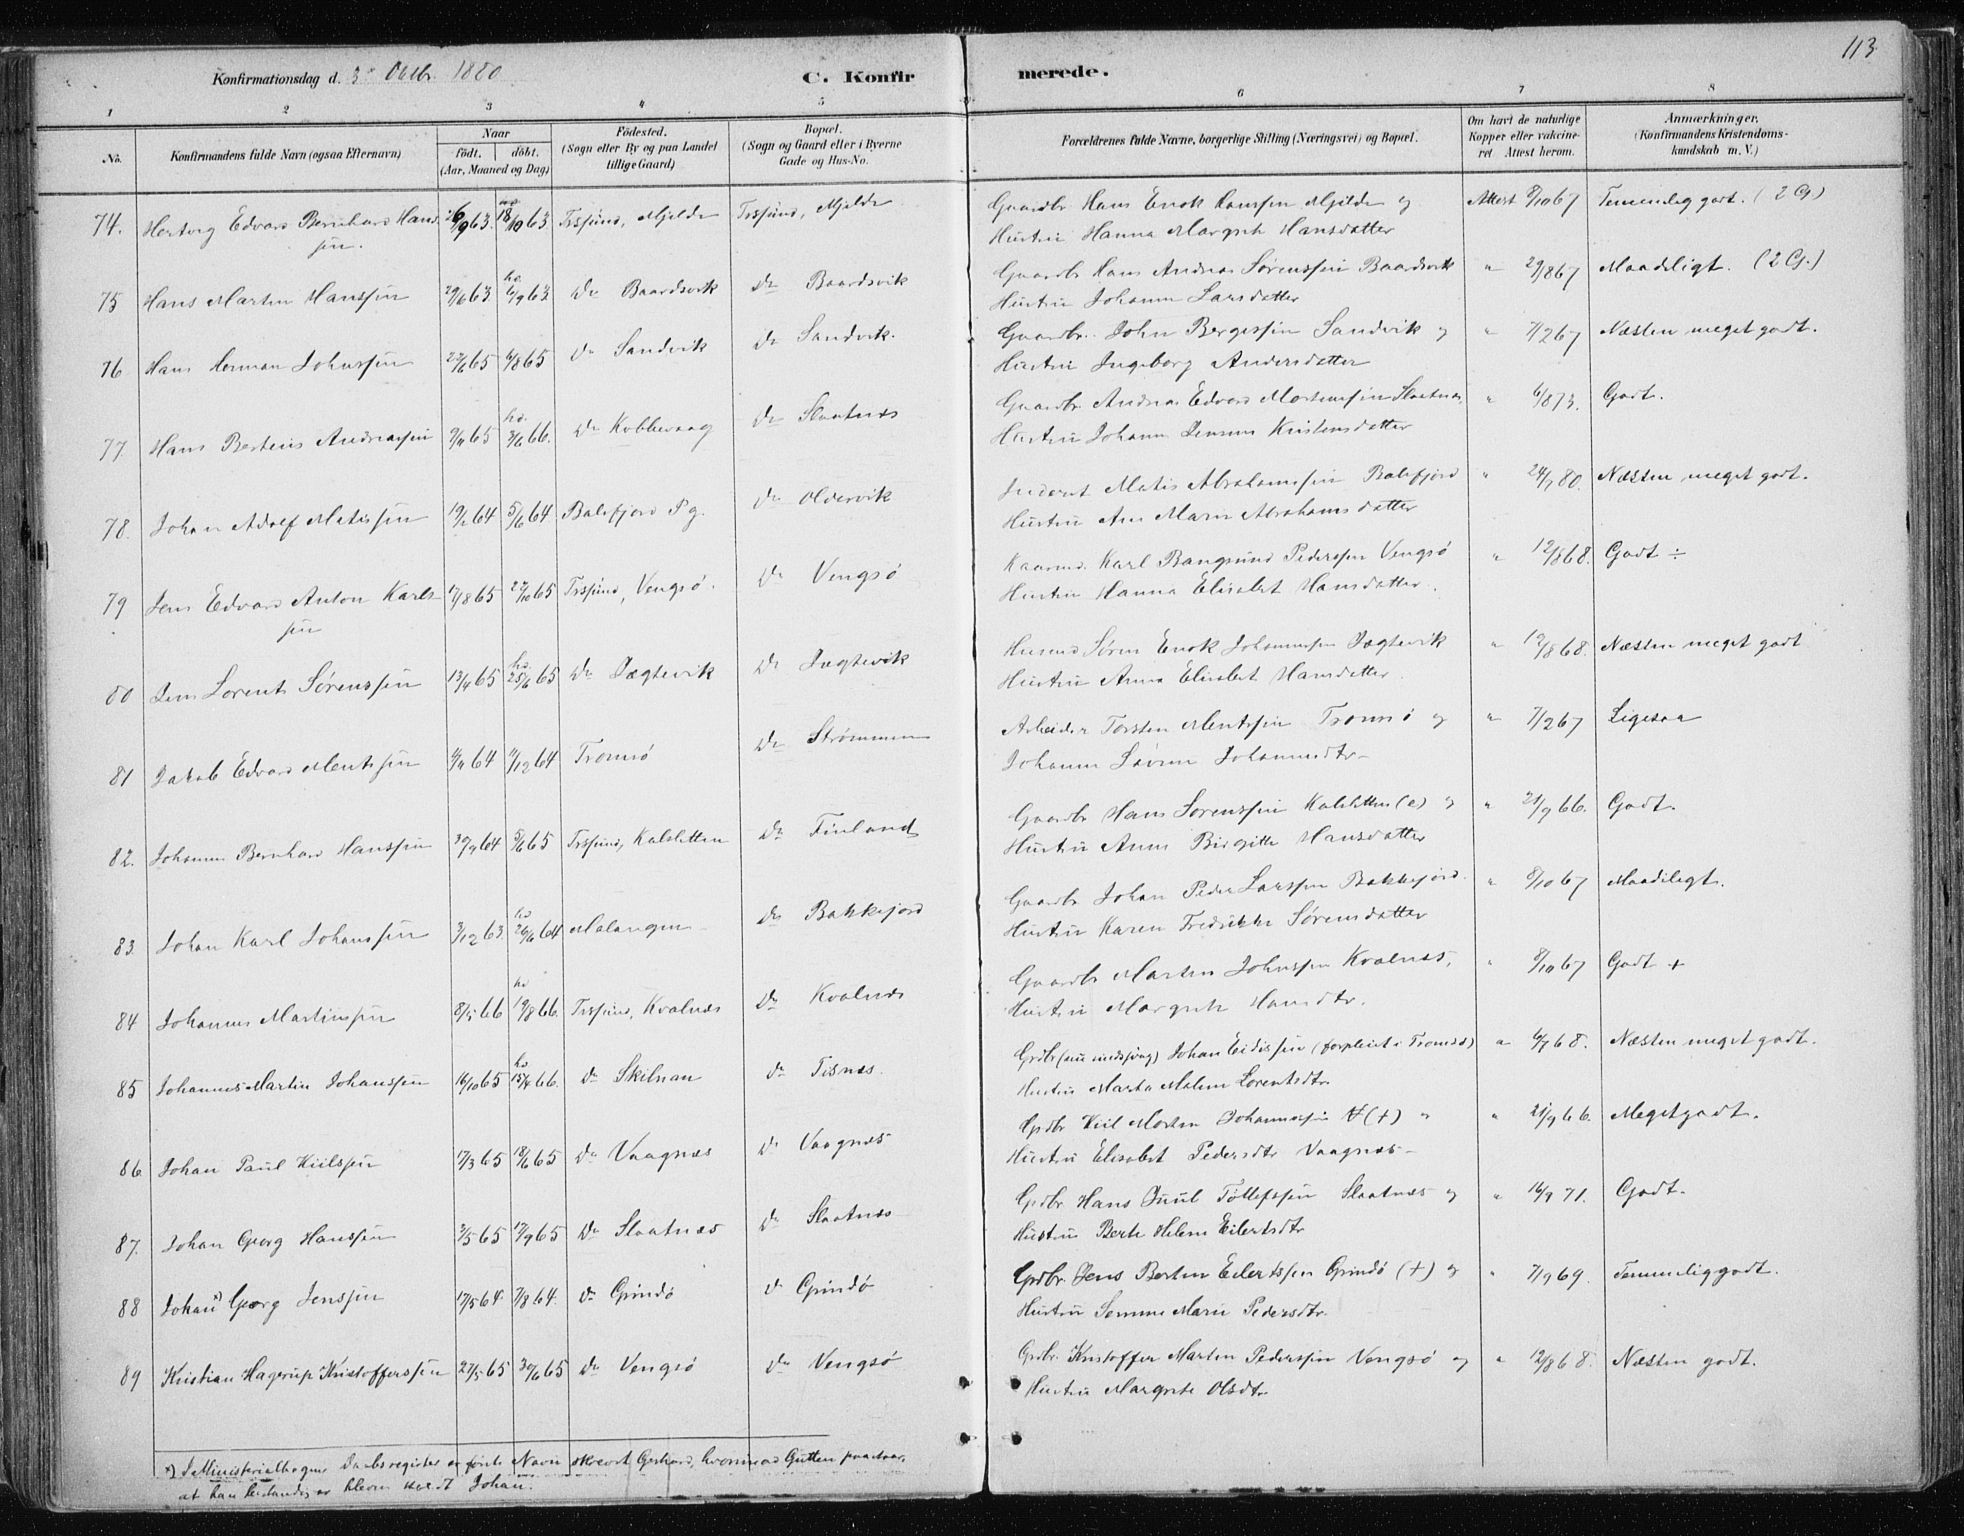 113
Konfirmationsdag d. 3 Octbr. 1880
C. Konfirmerede.
1 2 3 4 5 6 7 8
No.
Konfirmandens fulde Navn (ogsaa Efternavn)
Naar
født. døbt.
(Aar, Maaned og Dag)
Fødested.
(Sogn eller By og paa Landet
tillige Gaard)
Bopæl.
(Sogn og Gaard eller i Byerne
Gade og Hus-No.
Forældrenes fulde Navne, borgerlige Stilling (Næringsvei) og Bopæl.
Om havt de naturlige
Kopper eller vakcine-
ret Attest herom.
Anmærkninger.
(Konfirmandens Kristendoms-
kundskab m. V.)
74. Hertvig Edvard Bernhard Hans- 26/9 63. 18/10 63 Trssund, Mjelde Trssund, Mjelde Gaardbr Hans Enok Hanssen Mjelde og Attest 8/10 67 Temmelig godt. (2 G)
sen. Hustru Hanna Margrete Hansdatter
75 Hans Martin Hanssen 29/6 63 6/9 63 Do Baardsvik Do Baardsvik Gaardbr Hans Andreas Sørenssen Baardsvik " 29/8 67 Maadeligt. (2 G.)
Hustru Johanna Larsdatter
76 Hans Herman Johnssen 22/6 65 6/8 65 Do Sandvik Do Sandvik. Gaardbr. John Bergessen Sandvik og " 7/2 67 Næsten meget godt.
Hustru Ingeborg Andersdatter
77. Hans Bertius Andreassen 9/11 65 3/6 66. Do Kobbevaag Do Slaatnæs Gaardbr Andreas Edvard Mortenssen Slaatnæs, " 6/8 73. Godt.
Hustru Johanna Jensine Kristensdatter
78. Johan Adolf Matissen 19/2 64 5/6 64 Balsfjord Pg. Do Oldervik Inderst Matis Abrahamssen Balsfjord " 24/7 80. Næsten meget godt.
Hustru Ane Marie Abrahamsdatter
79 Jens Edvard Anton Karls- 17/8 65 22/10 65 Trssund, Vengsö. Do Vengsö Kaarmd. Karl Bangsund Pederssen Vengsö " 12/8 68. Godt ÷
sen Hustru Hanna Elisabet Hansdatter.
80 Jens Lorents Sørenssen 13/4 65 25/6 65 Do Jægtevik Do Jægtevik Husmd Søren Enok Johannessen Jægtevik " 12/8 68. Næsten meget godt
Hustru Anna Elisabet Hansdatter.
81 Jakob Edvard Mentssen 4/11 64 11/12 64 Tromsö Do Strømmen Arbeider Torsten Mentssen Tromsö og " 7/2 67 Ligesaa
Johanna Lovise Johannesdtr
82. Johannes Bernhard Hanssen 30/9 64 5/6 65 Trssund, Kalsletten Do Finland Gaardbr Hans Sørenssen Kalsletten (e) og " 21/9 66. Godt.
Hustru Anne Birgitte Hansdatter
83. Johan Karl Johanssen 3/12 63. 26/6 64 Malangen Do Bakkejord Gaardbr Johan Peder Larssen Bakkejord. " 8/10 67 Maadeligt.
Hustru Karen Fredrikke Sørensdatter
84 Johannes Martinssen 8/5 66 19/8 66. Trssund, Kvalnæs Do Kvalnæs Gaardbr Martin Johnssen Kvalnæs, " 8/10 67 Godt +
Hustru Margrete Hansdtr.
85 Johannes Martin Johanssen 16/10 65 15/4 66. Do Skilnan Do Tisnæs. Grdbr (nu sindssyg) Johan Eidissen (forpleiet i Tromsø) " 6/7 68. Næsten meget godt.
Hustru Marta Malene Lorentsdtr.
86. Johan Paul Kiilssen 17/3 65 18/6 65 Do Vaagnæs Do Vaagnæs Grdbr Kiil Morten Johannessen (+) " " 21/9 66. Meget godt.
Hustru Elisabet Pedersdtr Vaagnæs
87. Johan Georg Hanssen 3/5 65 17/9 65 Do Slaatnæs Do Slaatnæs Grdbr. Hans Juul Tøllefssen Slaatnæs og " 16/9 71. Godt.
Hustru Berte Helene Eilertsdtr
88 Johan*) Georg Jenssen 17/5 64. 7/8 64. Do Grindö Do Grindö Grdbr. Jens Bertin Eilertssen Grindö (+) og " 7/9 69. Temmelig godt.
Hustru Semine Marie Pedersdtr.
89 Kristian Hagerup Kristofferssen 27/5 65 30/6 65 Do Vengsö Do Vengsö Grdbr. Kristoffer Martin Pederssen Vengsö og " 12/8 68. Næsten godt.
Hustru Margrete Olsdtr
*) I Ministerialbogens Daabsregister er første Navn skrevet Gerhard, hvorimod Gutten paastaar,
at han bestandig er bleven kaldt Johan.